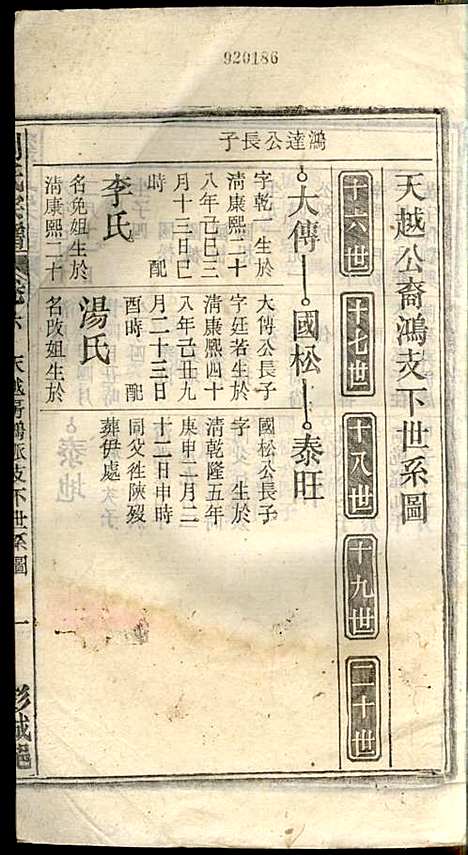 920186
天越公裔鴻支下世系圖
十六世
十七世
十八世
十九世
二十世
鴻達公長子
大傳
國松
泰旺
字乾一生於
清康熙二十
八年己巳三
月十三日巳
時 配
李氏
名免姐生於
清康熙二十
大傳公長子
字廷若生於
清康熙四十
八年己丑九
月二十三日
酉時 配
湯氏
名改姐生於
國松公長子
字 生於
清乾隆五年
庚申二月二
十二日申時
同父徃陝歿
葬伊處
泰地
劉氏宗譜
天越房鴻派支下世系圖
一
彭城